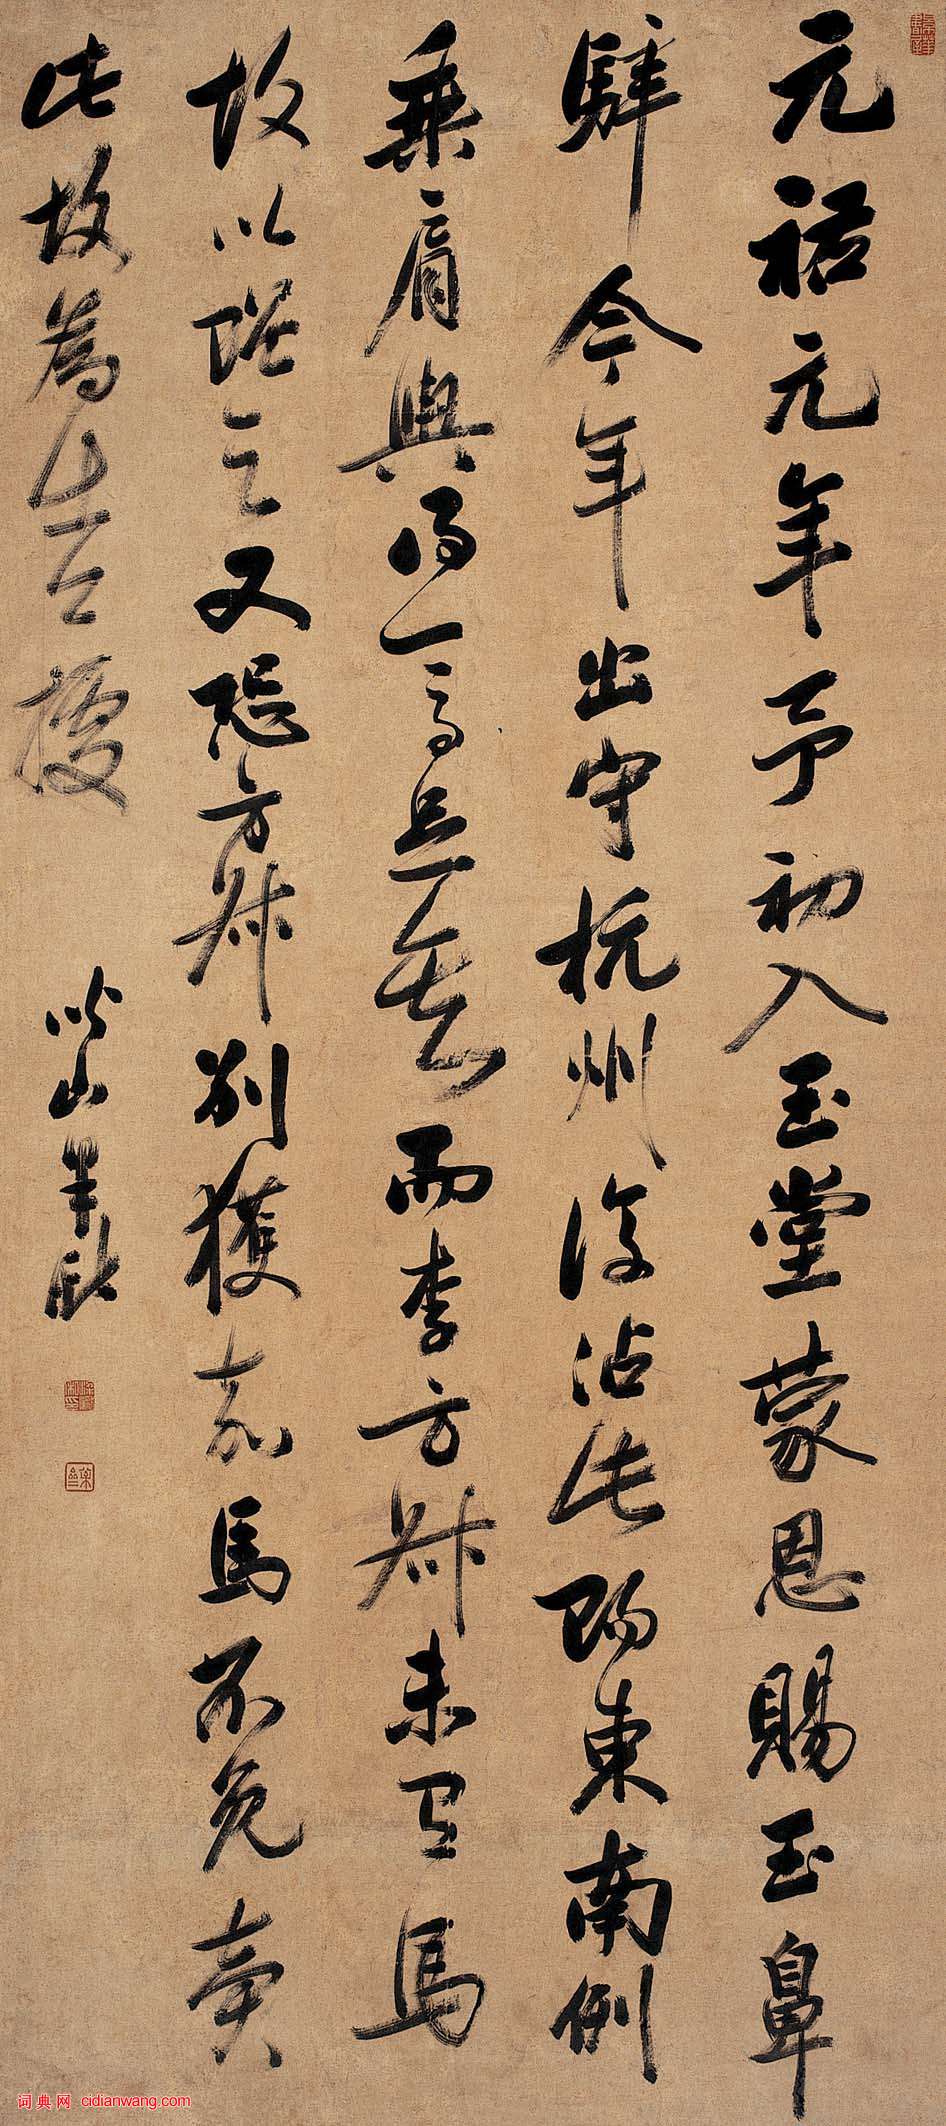 元祐元年予初入玉堂蒙恩賜玉鼻
騂今年出守杭州復沾此賜東南例
乘肩輿得一馬足矣而李方叔未有馬
故以贈之又恐方叔別獲嘉馬不免賣
此故為出公據
词典网 cidianwang.com